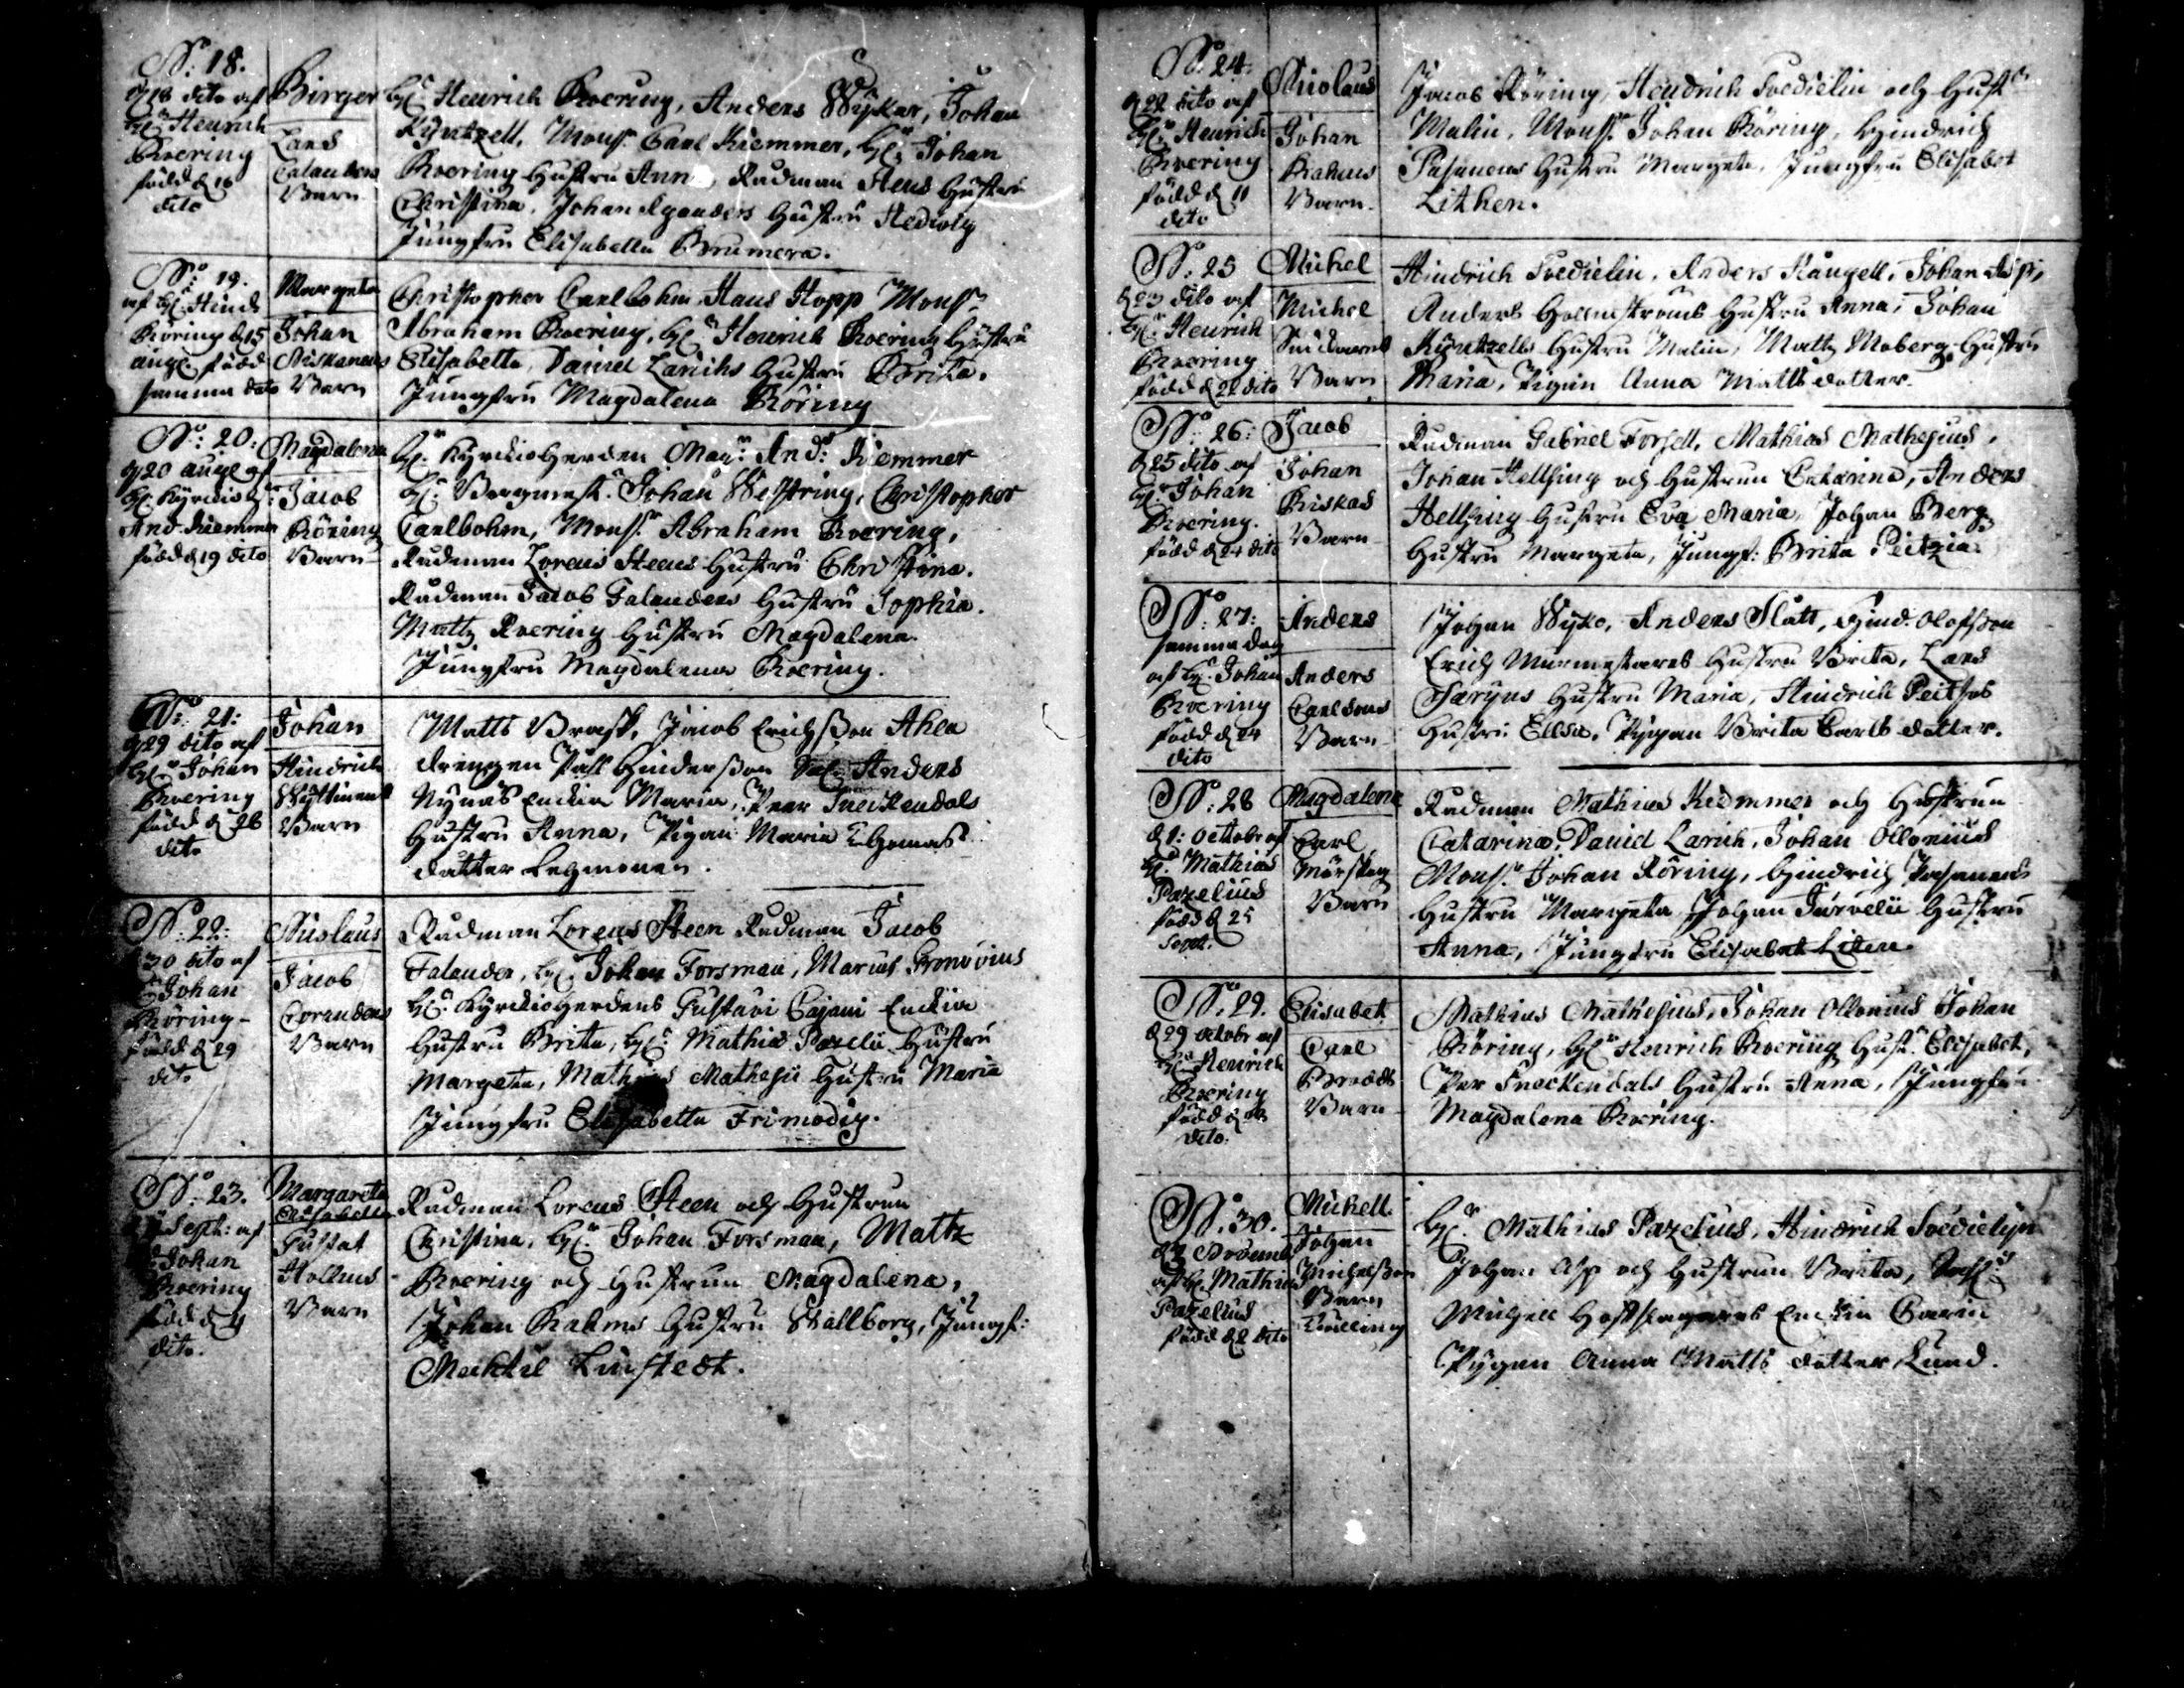 No: 18.
d 18 dito af
hr Henrich
Roering
född d 16
dito
Birger
Lars
Calanders
Barn
hr Henrich Roering, Anders Wijkar, Johan
Kyntzell, Mons. Carl Kiemmer, hr Johan
Roering hustru Anna, Rådman Stens hustru
Christina, Johan Aganders hustru Hedwig
Jungfru Elisabetha Brumera.
No: 19.
af hr Hind.
Röring d 15
aug. född
samma dato
Margeta
Johan
Niskanens
Barn
Christopher Carlbohm, Hans Hopp Mons.
Abraham Roering, hr Henrich Roering hustru
Elisabetha, Daniel Larichs hustru Brita.
Jungfru Magdalena Röring
No: 20:
d 20 aug. af
hr Kyrckioh:
And. Kiemmer
född d 19 dito
Magdalena
Jacob
Röring
Barn
hr Kyrckioherden Mag: And: Kiemmer
hr Borgmest. Johan Westring, Christopher
Carlbohm, Mons. Abraham Roering,
Rådman Lorens Steens hustru Christina.
Rådman Jacob Falanders hustru Sophia.
Matts Roering hustru Magdalena.
Jungfru Magdalena Roering.
No: 21:
d 29 dito af
hr Johan
Roering
född d 28
dito
Johan
Hindrich
Wyttinens
Barn
Matts Brask, Jacob Erichsson Ahla
drengen Påll Hindersson Sal. Anders
Nynäs Enckia Maria, Peer Sneckendals
hustru Anna, Pigan Maria Thomas
datter Lehmonen.
No: 22:
30 dito af
hr Johan
Röring
född d 29
dito
Nicolaus
Jacob
Coranders
Barn
Rådman Lorens Steen Rådman Jacob
Falander, hr Johan Forsman, Marius Gronovius
hr Kyrckioherdens Gustavi Cajani Enckia
hustru Brita, hr Mathias Pazelii hustru
Margeta, Mathias Mathesii hustru Maria
Jungfru Elisabetha Frimodig.
No: 23.
Sept: af
hr Johan
Roering
född d 4
dito.
Margareta
Elisabetha
Gustaf
Hollms
Barn
Rådman Lorens Steen och hustrun
Christina, hr Johan Forsman, Matts
Roering och hustrun Magdalena,
Johan Rahms hustru Wallborg, Jungf:
Mechtil Linstedt.
No: 24.
d 22 dito af
hr Henrich
Roering
född d 11
dito
Nicolaus
Johan
Rahms
Barn
Jacob Röring, Hendrich Soedielin och hust
Malin, Mons. Johan Röring, Hindrich
Pasanens hustru Margeta, Jungfru Elisabet
Lithen.
No: 25
d 23 dito af
hr Henrich
Roering
född d 22 dito
Michel
Michel
Barn
Hindrich Soedielin, Anders Kångell, Johan
Anders Hollmströms hustru Anna, Johan
Kyntzells hustru Malin, Matts Moberg hustru
Maria, Pigan Anna Matts dotter.
No: 26:
d 25 dito af
hr Johan
Roering.
född d 24 dito
Jacob
Johan
Riskas
Barn
Rådman Gabriel Forsell, Mathias Mathesius,
Johan Hellsing och hustrun Catarina, Anders
Hellsing hustru Eva Maria, Johan Berg
hustru Margeta, Jungf: Brita Peitzia.
No: 27:
samma dag
af hr Johan
Roering
född d 24
dito
Anders
Anders
Carlsons
Barn
Johan Wijko, Anders Slått, Hind. Olofsson
Erich Murmestares hustru Brita, Lars
Saryns hustru Maria, Hindrich Peitsos
hustru Ellsa, Pigan Brita Carls dotter.
No: 28
d 1: octobr af
hr Mathias
Pazelius
född d 25
Sept.
Magdalena
Carl
Mörskog
Barn
Rådman Mathias Kiemmer och hustrun
Catarina, Daniel Larich, Johan Ollonius
Mons. Johan Röring, Hindrich Pasanens
hustru Margeta Johan Järvelii hustru
Anna, Jungfru Elisabet Liten.
No. 29.
d 29 octobr af
hr Henrich
Roering
född d 28
dito.
Elisabet
Carl
Brodds
Barn
Mathias Mathesius, Johan Ollonius Johan
Röring, hr Henrich Roering hust. Elisabet,
Per Sneckendals hustru Anna, Jungfru
Magdalena Roering.
No. 30.
d 3 Novemb
af hr Mathias
Pazelius
född d 2 dito
Michell
Johan
Michelsson
Barn
hr Mathias Pazelius, Hindrich Soedielin
Johan Asp och hustrun Brita, Sal.
Michell Enckia Carin
Pigan Anna Matts dotter Lund.